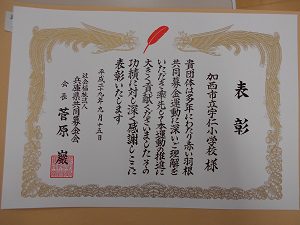 表彰
加西市立宇仁小学校 様
貴団体は多年にわたり赤い羽根
共同募金運動に深いご理解を
いただき率先して本運動の推進に
大きく貢献くださいましたその
功績に対し深く感謝しここに
表彰いたします
平成二十九年九月十五日
社会福祉法人
兵庫県共同募金会
会長 菅原 巌